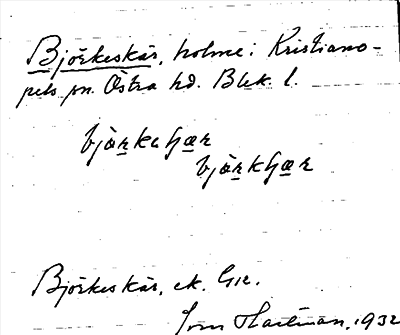 Björkeskär, holme i Kristiano-
pels sn. Östra hd. Blek. l.
björkaʃær
björkʃær
Björkeskär, ek.
Hartman, 1932